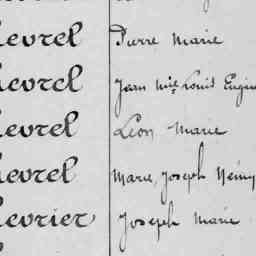 levrel Pierre Marie
levrel Jean Mie Louis Eugèn
levrel Léon Marie
levrel Marie, Joseph Rémy
levrier Joseph Marie